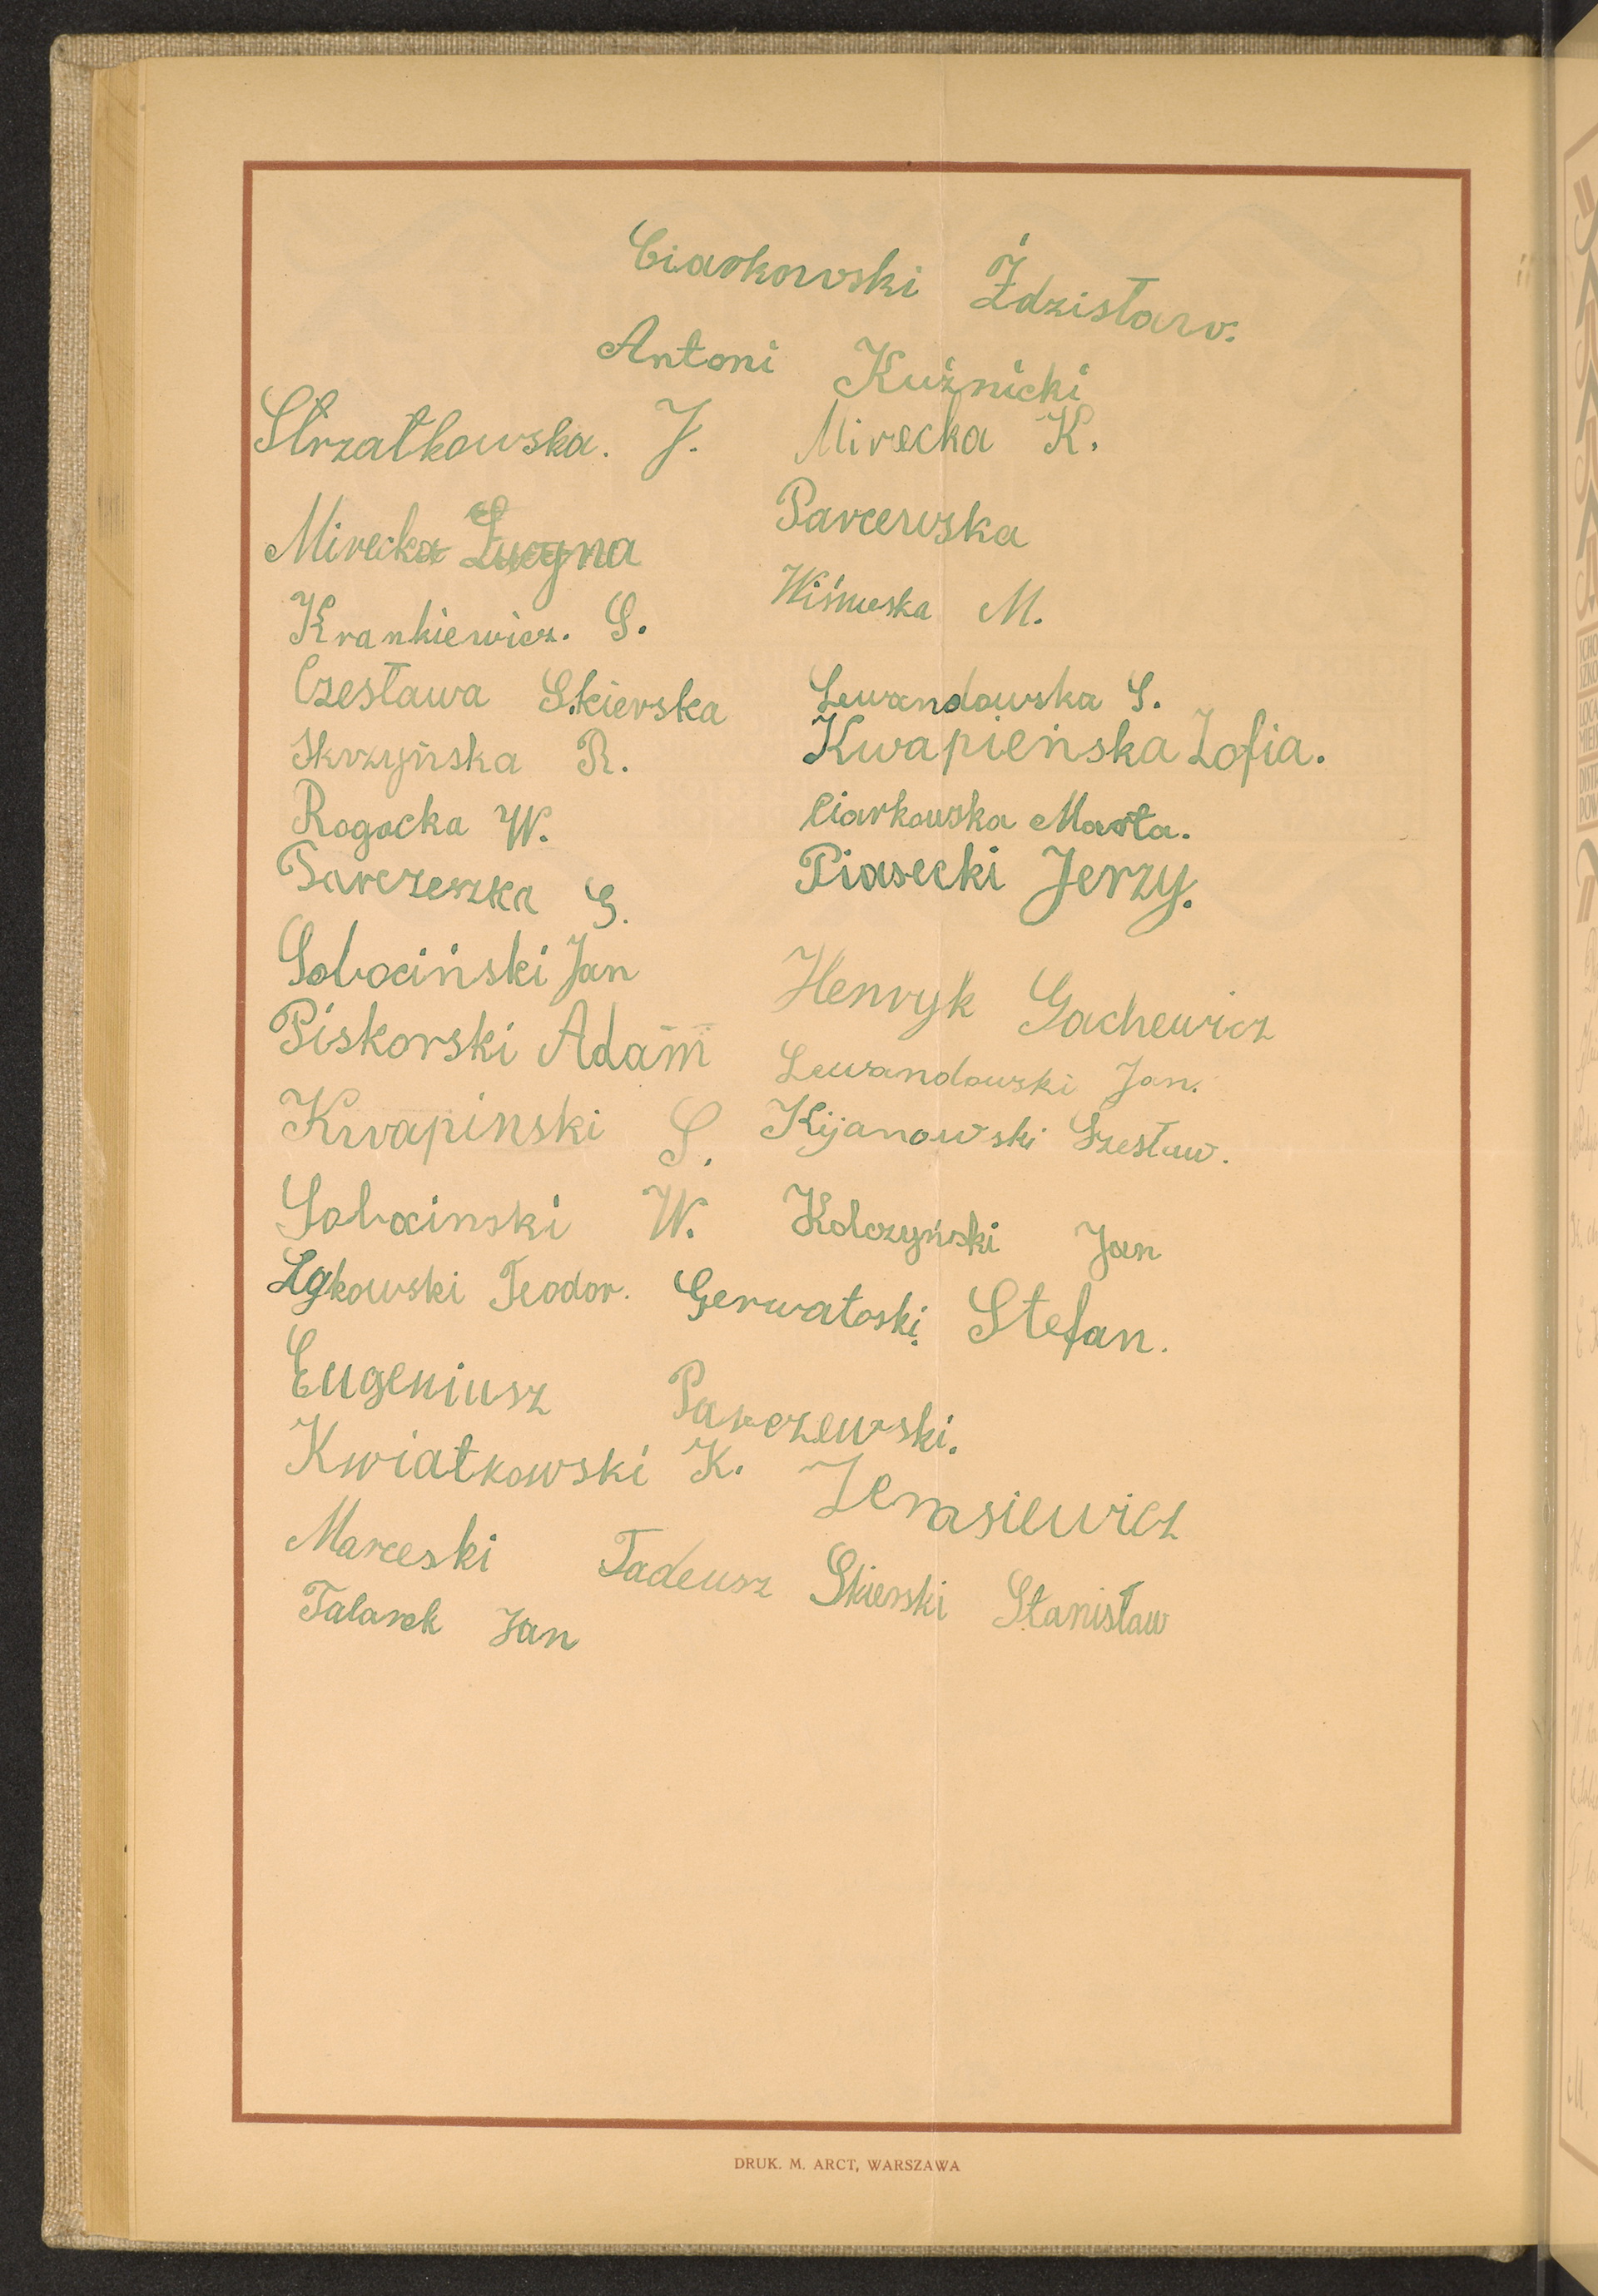 Ciarkowski Żdzisław.
Antoni Kuźnicki
Strzałkowska. J. Mirecka K.
Mirecka
Parcewska
Krankiewicz. S. Wiśnieska M.
Czesława Skierska Lewandowska S.
Skrzyńska R. Kwapieńska Zofia.
Rogacka W. Ciarkowska Marta.
Parczeszka G. Piasecki Jerzy.
Sobociński Jan Henryk Gachewicz
Piskorski Adam Lewandowski Jan.
Kwapinski S. Kijanowski Czesław.
Sobocinski W. Kolczyński Jan
Teodor. Gerwatoski Stefan.
Eugeniusz Parczewski.
Kwiatkowski K.
Marceski Tadeusz Skierski Stanisław
Talarek Jan
DRUK. M. ARCT, WARSZAWA